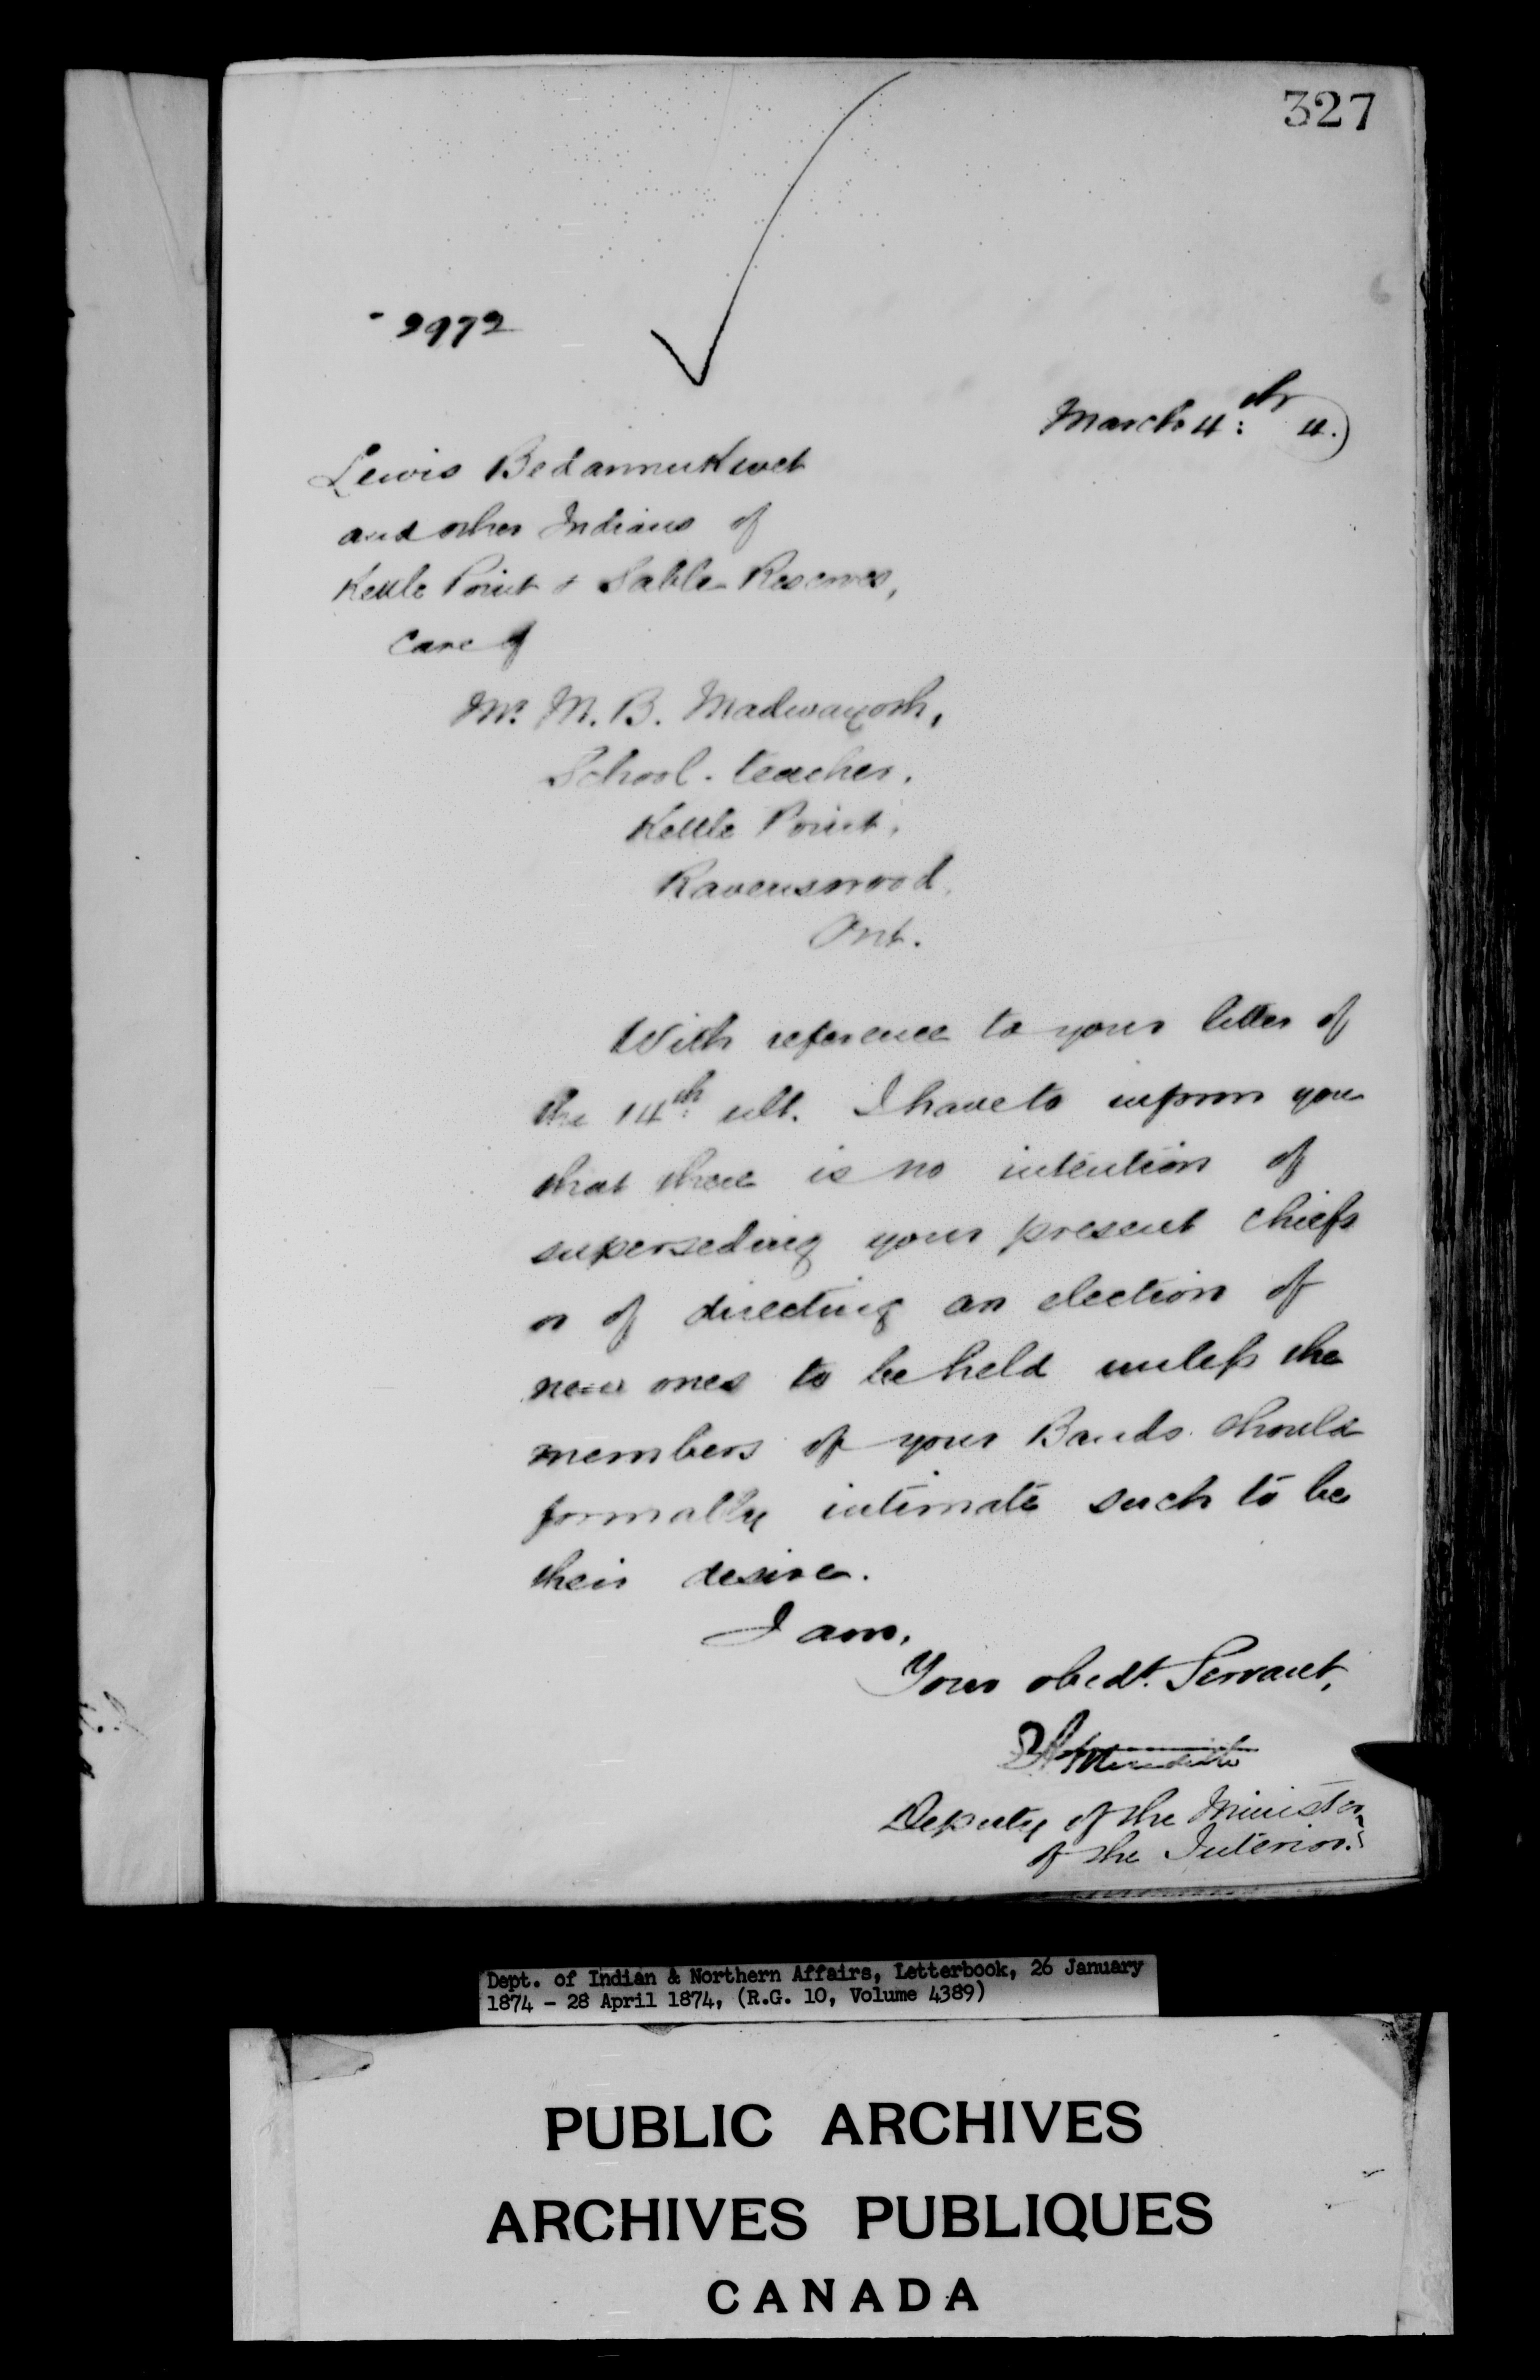 327
2972
March 4th 4.
Lewis Bedannukwet
and other Indians of
Kettle Point & Sable Reserves,
Care of
Mr. M. B. Madwayosh,
School-teacher,
Kettle Point,
Ravenswood,
Ont.
With reference to your letter of
the 14th ult. I have to inform you
that there is no intention of
superseding your present Chiefs
or of directing an election of
new ones to be held unless the
members of your Bands should
formally intimate such to be
their desire.
I am,
Your obedt. Servant,
EAMeredith
Deputy of the Minister
of the Interior.
Dept. of Indian & Northern Affairs, Letterbook, 26 January
1874 - 28 April 1874, (R.G. 10, Volume 4389)
PUBLIC ARCHIVES
ARCHIVES PUBLIQUES
CANADA